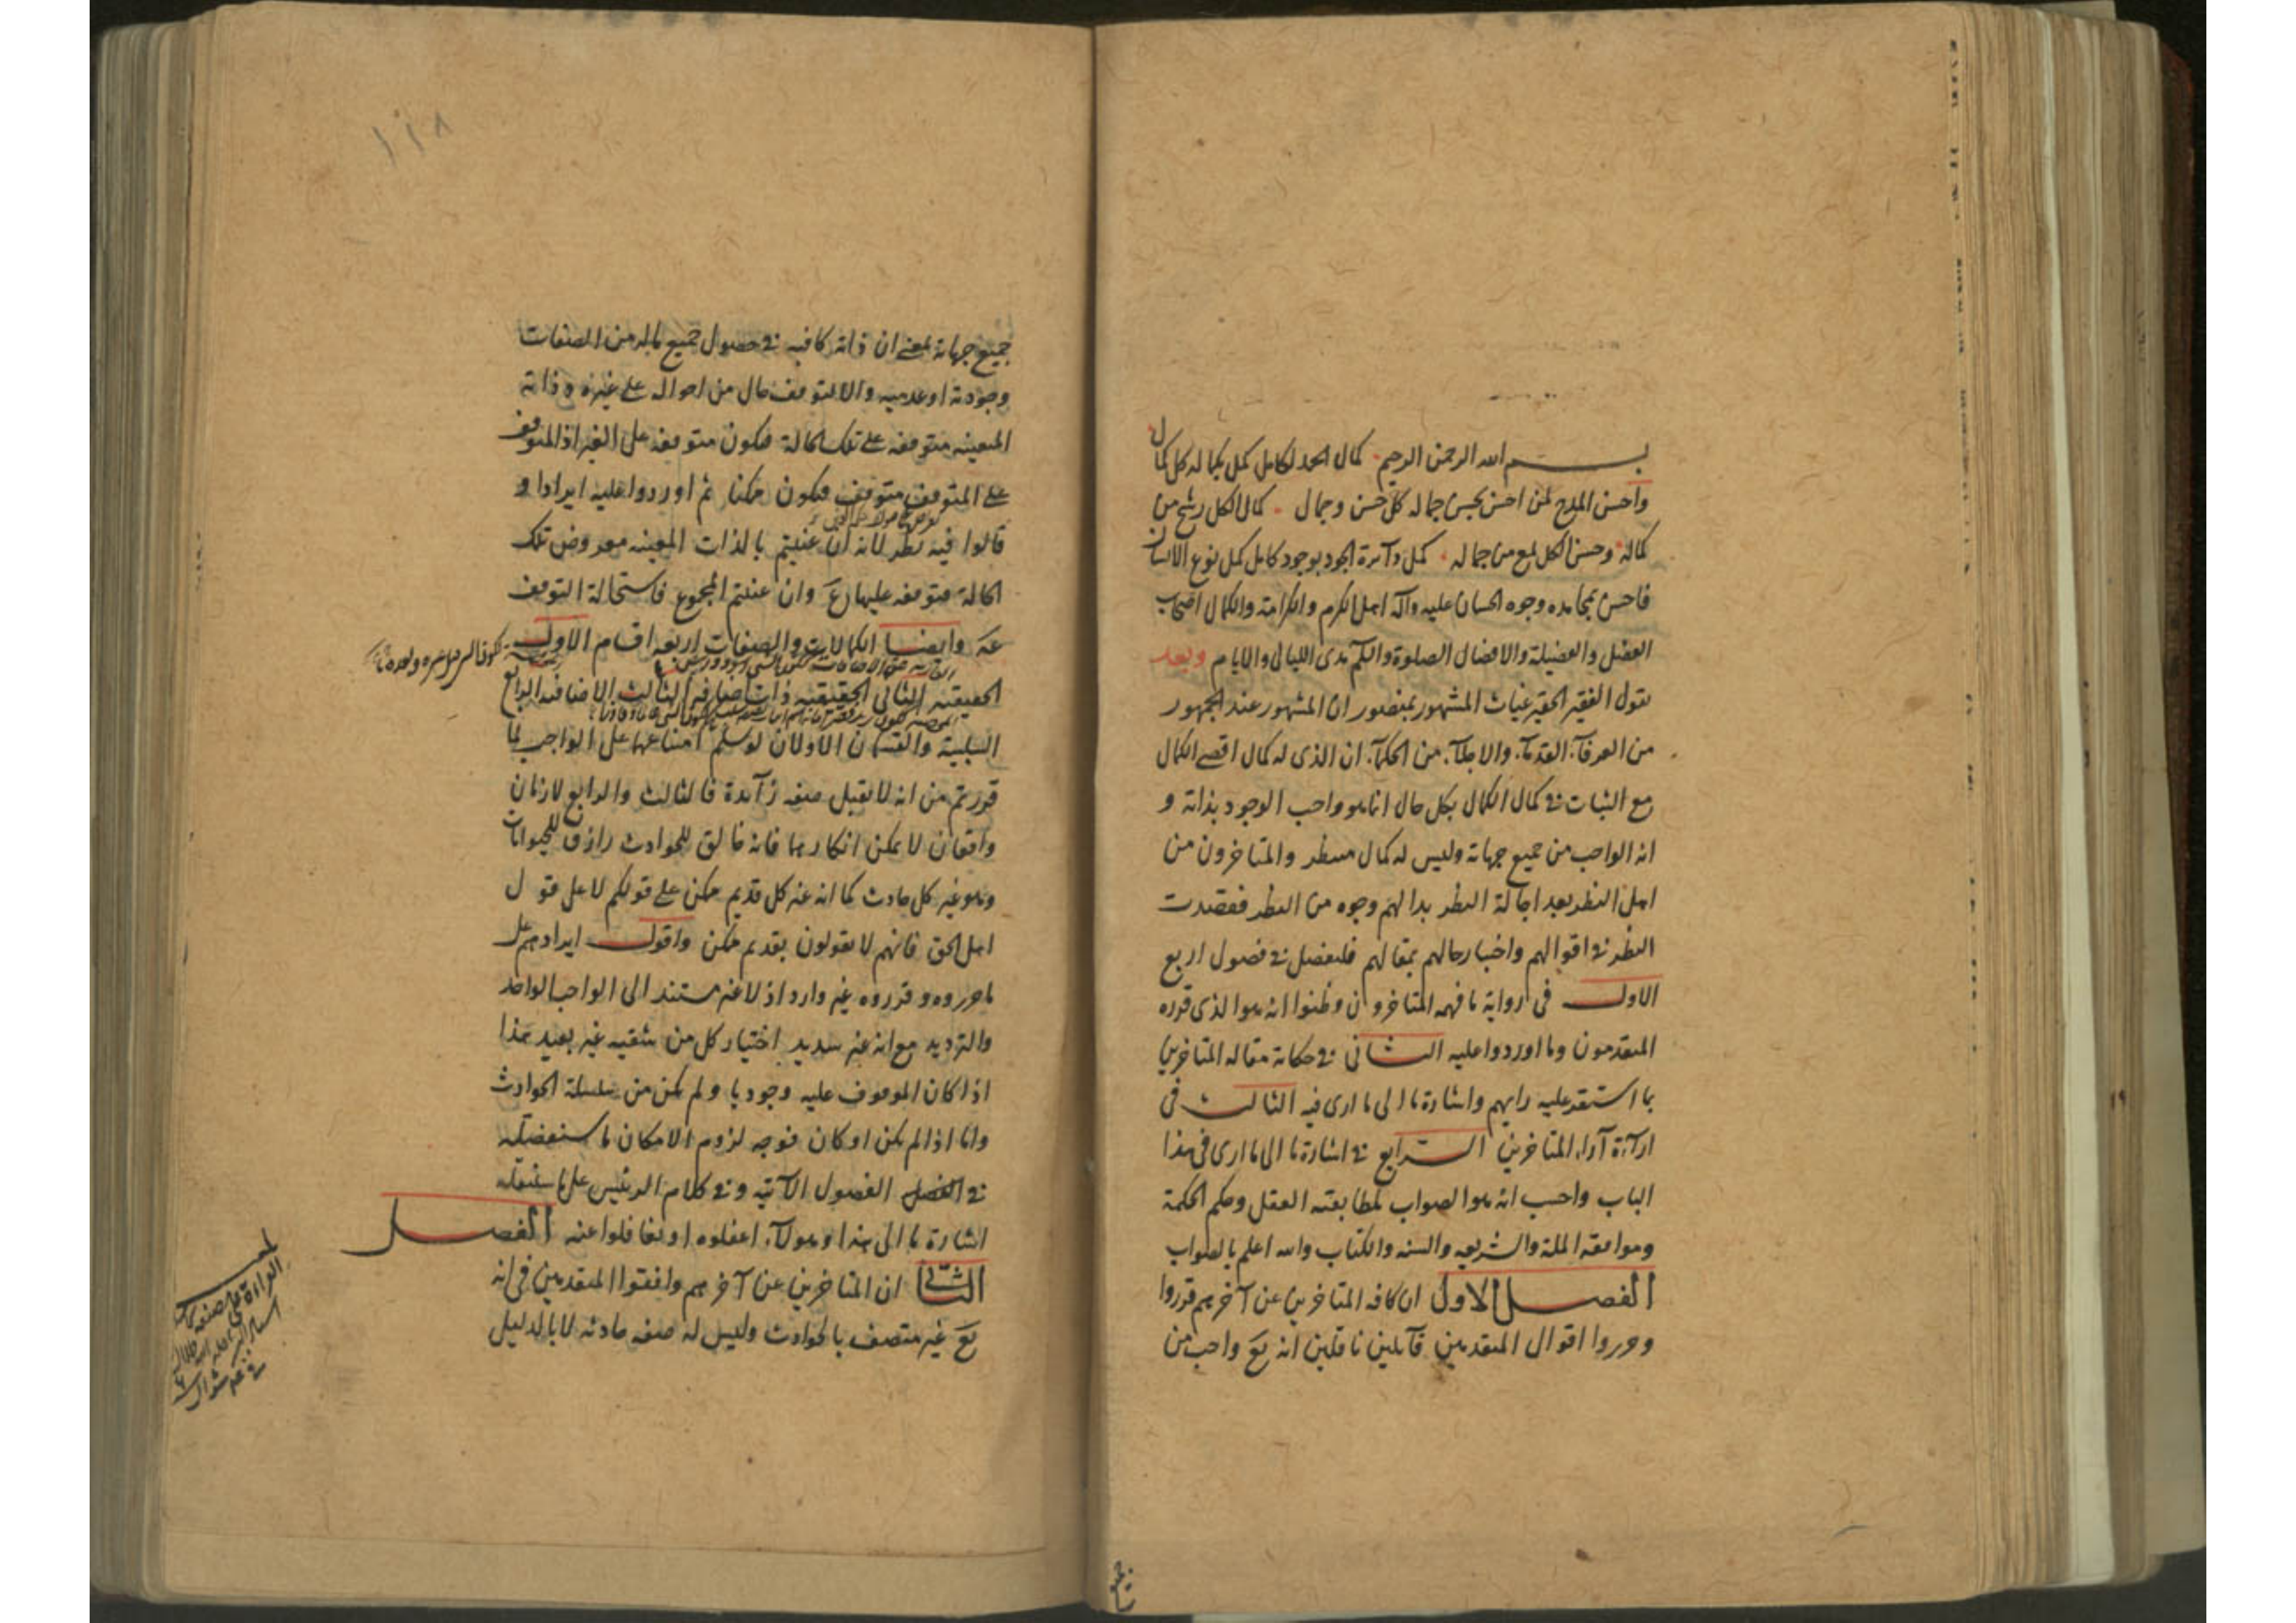 بسم الله الرحمن الرحيم كمال الحمد لكامل كمل بكماله كل كمال
واحسن المدح لمن احسن بحسن جماله كل حسن وجمال كمال الكل رشح من
كماله وحسن الكل لمع من جماله كمل دائرة الجود بوجود كامل كمل نوع الانسان
فاحسن بمحامده وجوه الحسان عليه وآله اهل الكرم والكرامة والكمال اصحاب
الفضل والفضيلة والافضال الصلوة والسلام مدى الليالى والايام وبعد
يقول الفقير الحقير غياث المشهور بمنصور ان المشهور عند الجمهور
من العرفآء القدمآء والاجلآء من الحكمآء ان الذى له كمال اقصى الكمال
مع الثبات فى كمال الكمال بكل حال انما هو واجب الوجود بذاته و
انه الواجب من جميع جهاته وليس له كمال منتظر والمتاخرون من
اهل النظر بعد اجالة النظر بدا لهم وجوه من النظر فقصدت
النظر فى اقوالهم واخبار حالهم بمقالهم فلنفصل فى فصول اربع
الاول فى رواية ما فهمه المتاخرون وظنوا انه هو الذى قرره
المتقدمون وما اوردوا عليه الثانى فى حكاية مقالة المتاخرين
بما استقر عليه رايهم واشارة ما الى ما ارى فيه الثالث فى
ارآءة آراء المتاخرين الرابع فى اشارة ما الى ما ارى فى هذا
الباب واحسب انه هو الصواب لمطابقته العقل وحكم الحكمة
وموافقة الملة والشريعة والسنة والكتاب والله اعلم بالصواب
الفصل الاول ان كافة المتاخرين عن آخرهم قرروا
وحرروا اقوال المتقدمين قآئلين ناقلين انه تع واجب من
جميع
١١٨
جميع جهاته بمعنى ان ذاته كافية فى حصول جميع ماله من الصفات
وجودية او عدمية والا لتوقف حال من احواله على غيره وذاته
المعينه متوقفة على تلك الحالة فيكون متوقفة على الغير اذ المتوقف
على المتوقف متوقف فيكون ممكنا ثم اوردوا عليه ايرادا و
قالوا فيه نظر لانه ان عنيتم بالذات المعينه معروض تلك
الحالة متوقفة عليها وان عنيتم المجموع فاستحالة التوقف
وايضا الكمالات والصفات اربعة اقسام الاول
الحقيقية الثانى الحقيقية ذات اضافة الثالث الاضافية الرابع
السلبية والقسمان الاولان لو سلم امتناعهما على الواجب لما
قررتم من انه لا يقبل صفة زآئدة فالثالث والرابع لازمان
واقعان لا يمكن انكارهما فانه خالق للحوادث رازق للحيوانات
وهو غير كل حادث كما انه غير كل قديم ممكن على قولكم لا على قول
اهل الحق فانهم لا يقولون بقديم ممكن واقول ايرادهم على
ما حرروه وقرروه غير وارد اذ لا غير مستند الى الواجب الواحد
والترديد مع انه غير سديد اختيار كل من شقيه غير بعيد هذا
اذا كان الموقوف عليه وجوديا ولم يكن من سلسلة الحوادث
واما اذا لم يكن او كان فتوجه لزوم الامكان ما سنفصله
فى الفصول الآتية وفى كلام الرئيس على ما سننقله
اشارة ما الى هذا وهولآء اغفلوه او تغافلوا عنه الفصل
الثانى ان المتاخرين عن آخرهم وافقوا المتقدمين فى انه
تع غير متصف بالحوادث وليس له صفة حادثة لا بالدليل